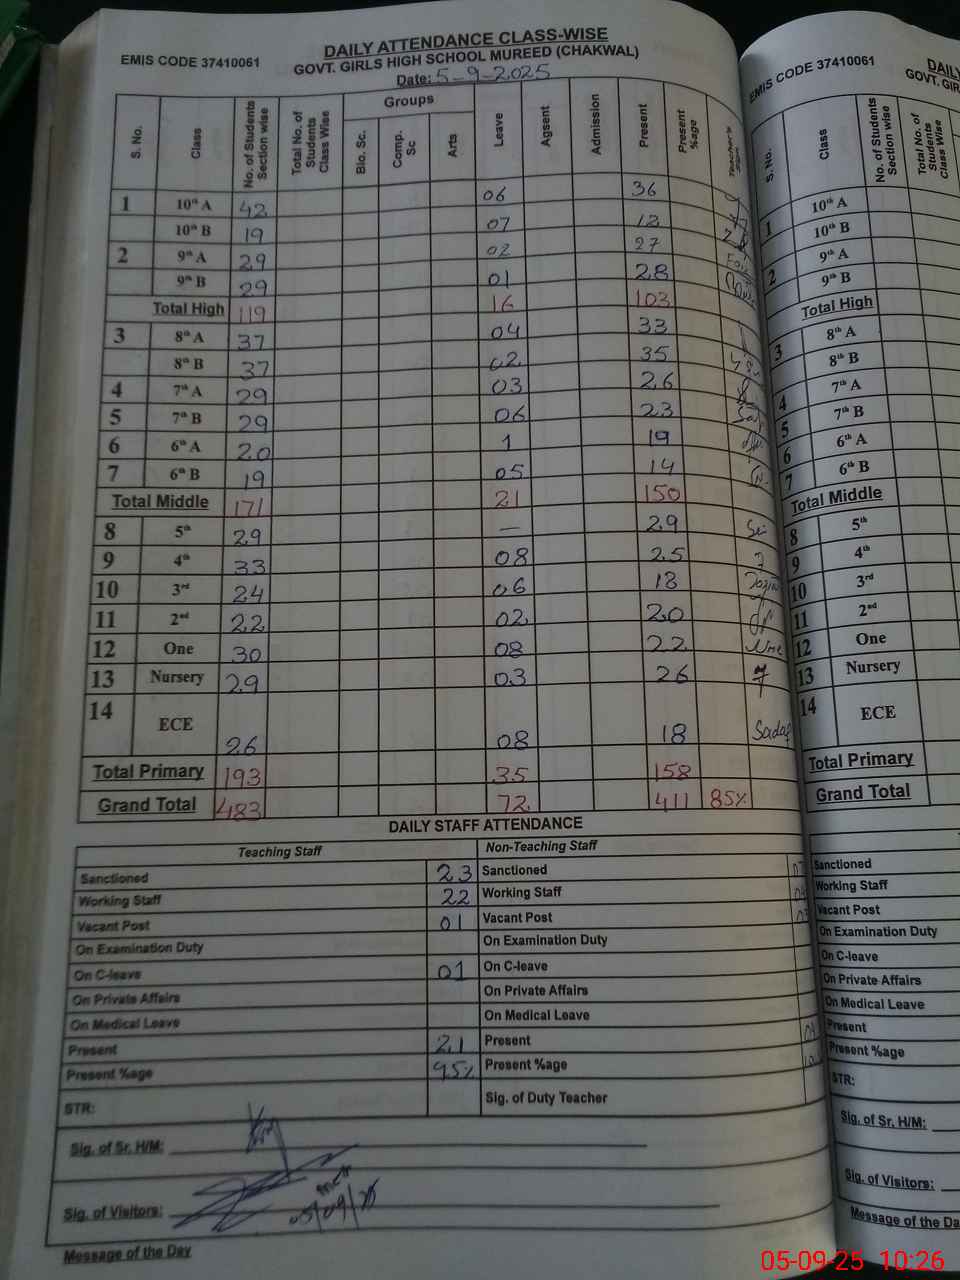 DAILY ATTENDANCE CLASS-WISE
EMIS CODE 37410061 GOVT. GIRLS HIGH SCHOOL MUREED (CHAKWAL)
Date: 5-9-2025
S. No. Class No. of Students Section wise Total No. of Students Class Wise Groups Bio. Sc. Comp. Sc Arts Leave Agsent Admission Present Present %age Teacher's Sign
1 10th A 42 06 36
10th B 19 07 12
2 9th A 29 02 27
9th B 29 01 28
Total High 119 16 103
3 8th A 37 04 33
8th B 37 02 35
4 7th A 29 03 26
5 7th B 29 06 23
6 6th A 20 1 19
7 6th B 19 05 14
Total Middle 171 21 150
8 5th 29 — 29
9 4th 33 08 25
10 3rd 24 06 18
11 2nd 22 02 20
12 One 30 08 22
13 Nursery 29 03 26
14 ECE 26 08 18 Sadaf
Total Primary 193 35 158
Grand Total 483 72 411 85%
DAILY STAFF ATTENDANCE
Teaching Staff Non-Teaching Staff
Sanctioned 23 Sanctioned
Working Staff 22 Working Staff 04
Vacant Post 01 Vacant Post 03
On Examination Duty On Examination Duty
On C-leave 01 On C-leave
On Private Affairs On Private Affairs
On Medical Leave On Medical Leave
Present 21 Present
Present %age 95% Present %age
STR: Sig. of Duty Teacher
Sig. of Sr. H/M:
Sig. of Visitors: 05/09/25
Message of the Day
EMIS CODE 37410061
S. No. Class No. of Students Section wise Total No. of Students Class Wise
1 10th A
10th B
2 9th A
9th B
Total High
3 8th A
8th B
4 7th A
5 7th B
6 6th A
7 6th B
Total Middle
8 5th
9 4th
10 3rd
11 2nd
12 One
13 Nursery
14 ECE
Total Primary
Grand Total
Sanctioned
Working Staff
Vacant Post
On Examination Duty
On C-leave
On Private Affairs
On Medical Leave
Present
Present %age
STR:
Sig. of Sr. H/M:
Sig. of Visitors:
Message of the Da
05-09-25 10:26